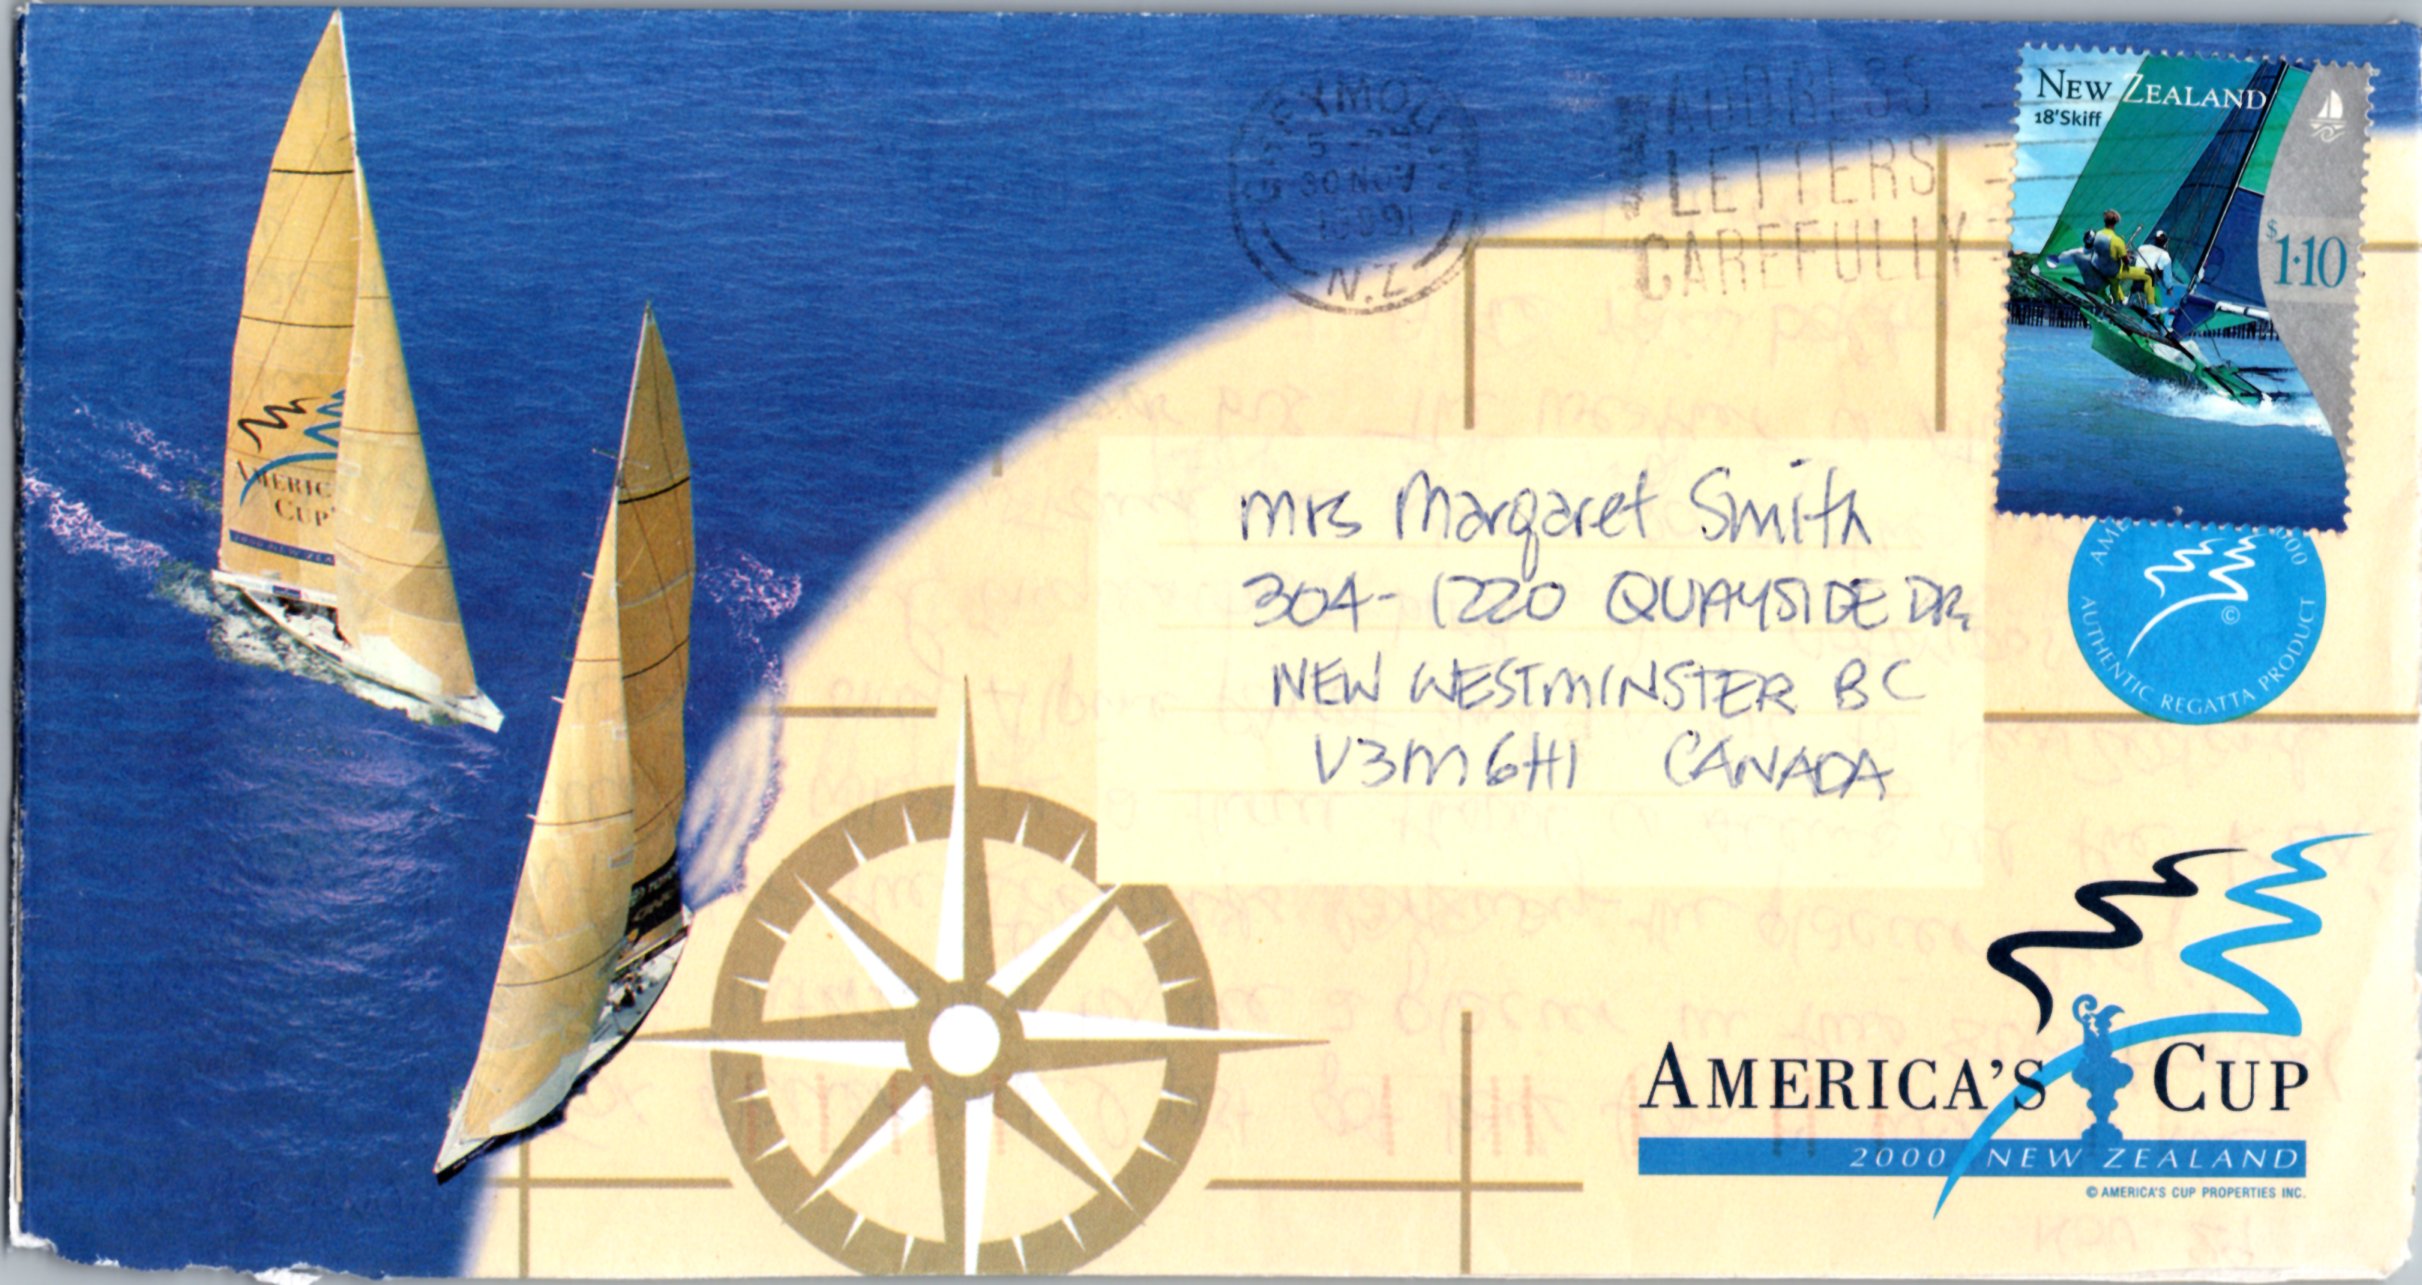 AMERICA'S
CUP
GREYMOUTH
30 NOV
1999
N.Z.
ADDRESS
LETTERS
CAREFULLY
NEW ZEALAND
18'Skiff
$1.10
AUTHENTIC REGATTA PRODUCT
©
Mrs Margaret Smith
304-1220 QUAYSIDE DR,
NEW WESTMINSTER BC
V3M 6H1 CANADA
AMERICA'S CUP
2000 NEW ZEALAND
© AMERICA'S CUP PROPERTIES INC.